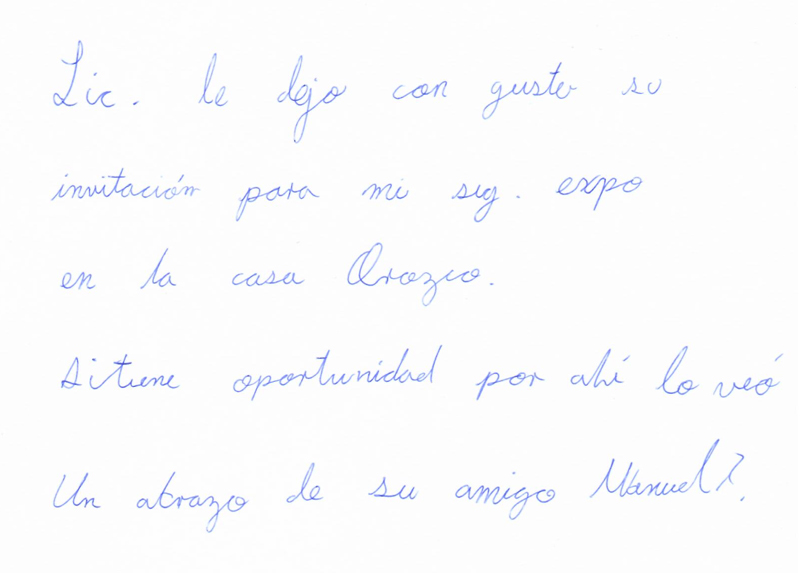 Lic. le dejo con gusto su
invitación para mi sig. expo
en la casa Orozco.
Si tiene oportunidad por ahí lo veó
Un abrazo de su amigo Manuel